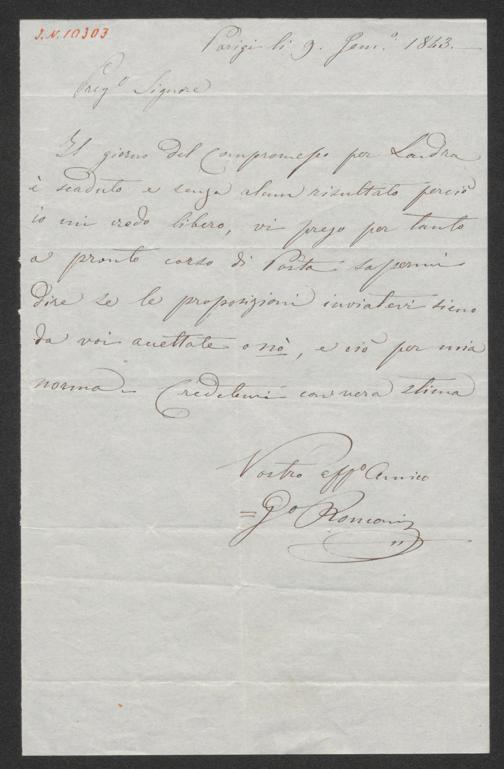 J.N. 10303
Parigi li 9. Gen.º 1843.
Preg.º Signore
Il giorno del Compromesso per Londra
è scaduto e senza alcun risultato perciò
io mi credo libero, vi prego per tanto
a pronto corso di Posta sapermi
dire se le proposizioni inviatevi sieno
da voi accettate o nò, e ciò per mia
norma. Credetemi con vera stima
Vostro aff.º Amico
= G.º Ronconi